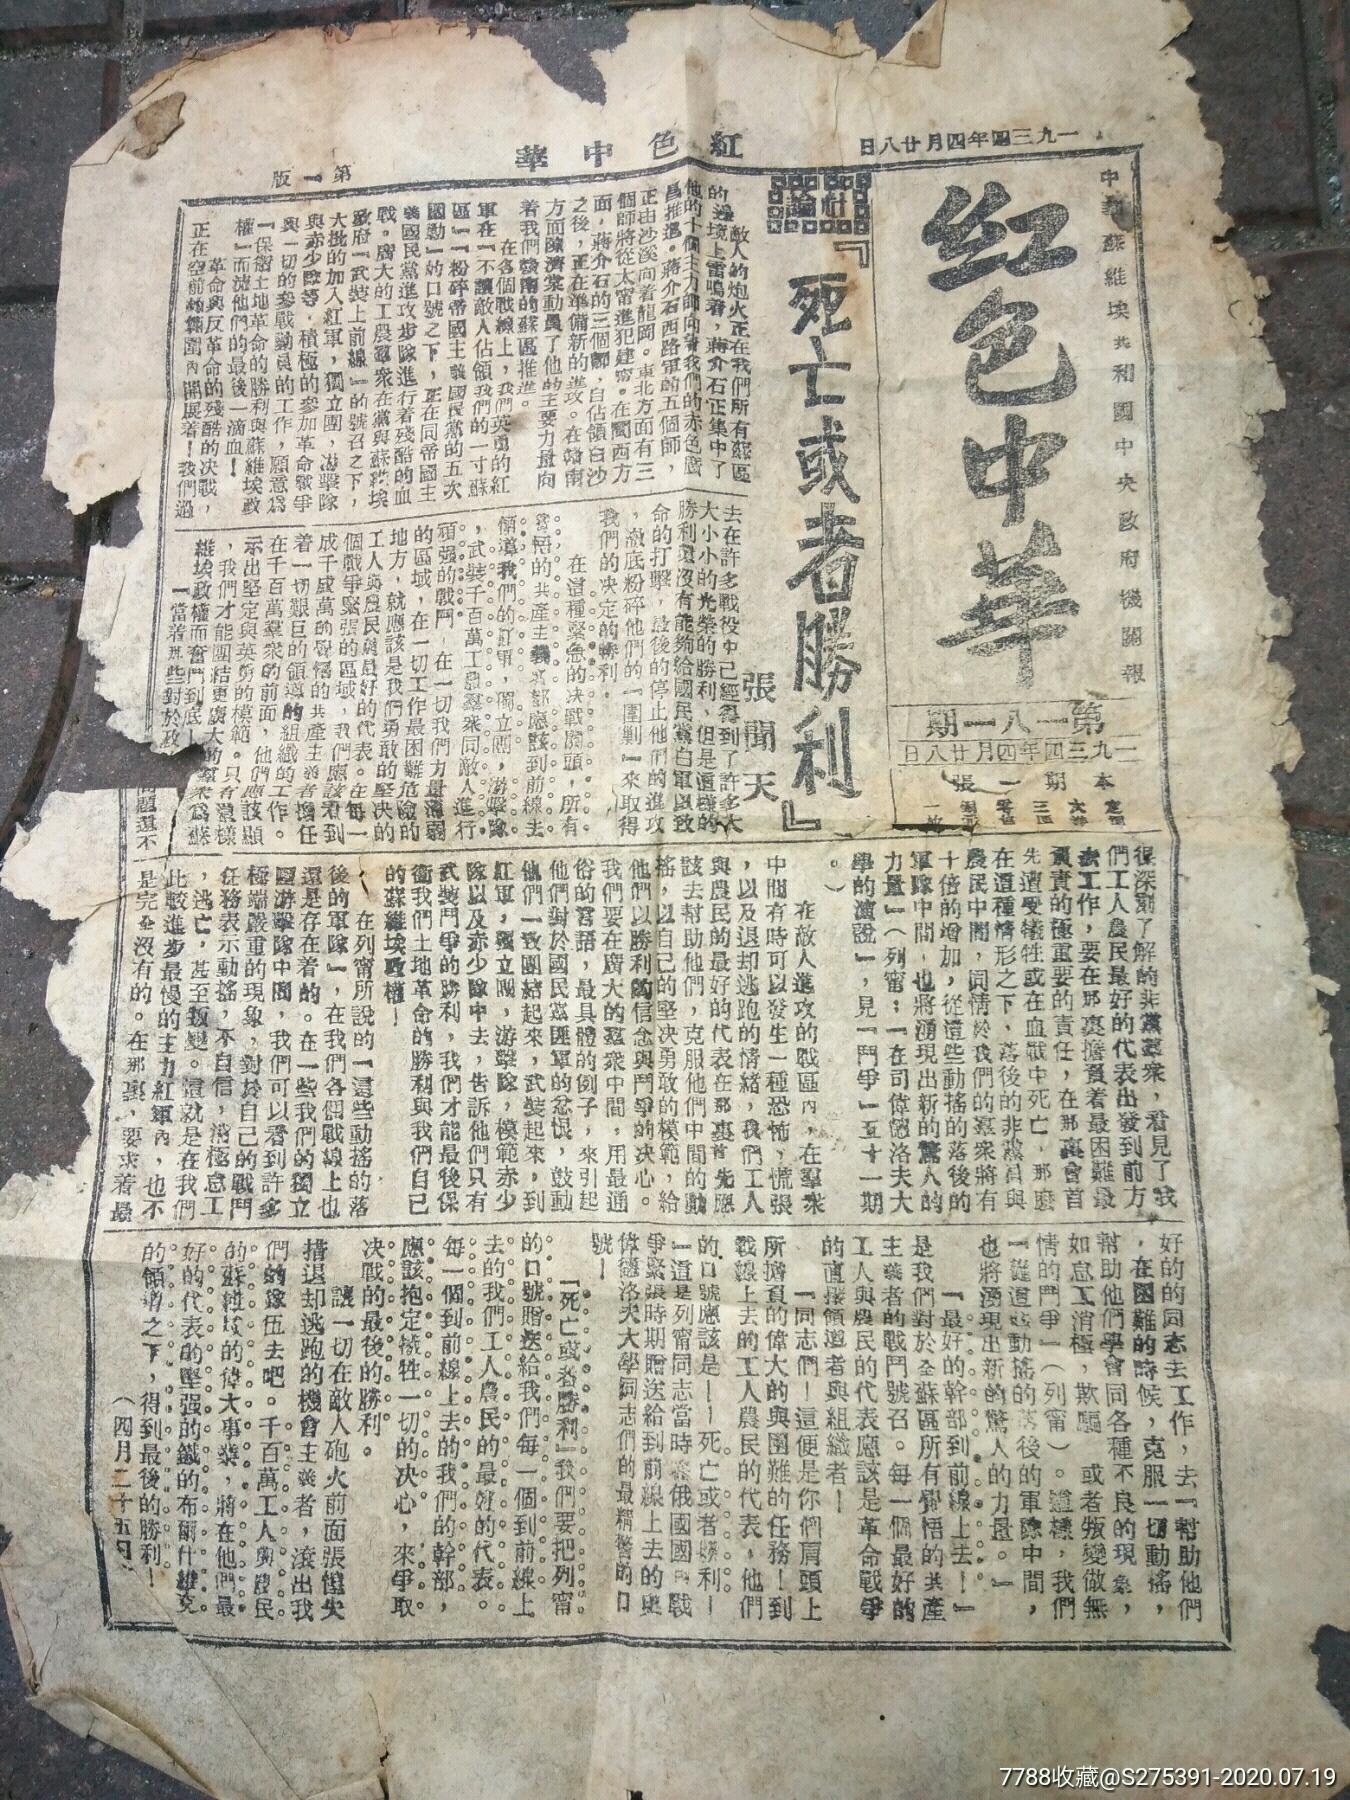 一九三四年四月廿八日
紅色中華
第一版
中華蘇維埃共和國中央政府機關報
红色中華
第一八一期
一九三四年四月廿八日
本期一張
社論
『死亡或者勝利』
張聞天
敵人的炮火正在我們所有蘇區
的邊境上雷鳴着，蔣介石正集中了
他的十個主力師向着我們的赤色廣
昌推進。蔣介石西路軍的五個師，
正由沙溪向着龍岡。東北方面有三
個師將從太甯進犯建甯。在閩西方
面，蔣介石的三個師，自佔領白沙
之後，正在準備新的進攻。在贛南
方面陳濟棠動員了他的主要力量向
着我們贛南的蘇區推進。
在各個戰線上，我們英勇的紅
軍在『不讓敵人佔領我們的一寸蘇
區』『粉碎帝國主義國民黨的五次
圍剿』的口號之下，正在同帝國主
義國民黨進攻步隊進行着殘酷的血
戰。廣大的工農羣衆在黨與蘇維埃
政府『武裝上前線』的號召之下，
大批的加入紅軍，獨立團，游擊隊
與赤少隊等，積極的參加革命戰爭
與一切的參戰動員的工作，願意爲
『保衛土地革命的勝利與蘇維埃政
權』而流他們的最後一滴血！
革命與反革命的殘酷的決戰，
正在空前的範圍內開展着！我們過
去在許多戰役中已經得到了許多大
大小小的光榮的勝利，但是這樣的
勝利還沒有能夠給國民黨白軍以致
命的打擊，最後的停止他們的進攻
，澈底粉碎他們的『圍剿』來取得
我們的决定的勝利。
在這種緊急的决戰關頭，所有
覺悟的共產主義者都應該到前線去
領導我們的紅軍，獨立團，游擊隊
，武裝千百萬工農羣衆同敵人進行
頑强的戰鬥。在一切我們力量薄弱
的區域，在一切工作最困難危險的
地方，就應該是我們勇敢的堅决的
工人與農民的最好的代表。在每一
個戰爭緊張的區域，我們應該看到
成千成萬的覺悟的共產主義者擔任
着一切艱巨的領導的組織的工作。
在千百萬羣衆的前面，他們應該顯
示出堅定與英勇的模範。只有這樣
，我們才能團結更廣大的羣衆爲蘇
維埃政權而奮鬥到底！
『當着那些對於政
問題還不
很深刻了解的非黨羣衆，看見了我
們工人農民最好的代表出發到前方
去工作，要在那裏擔負着最困難最
負責的極重要的責任，在那裏會首
先遭受犧牲或在血戰中死亡，那麼
在這種情形之下，落後的非黨員與
農民中間，同情於我們的羣衆將有
十倍的增加，從這些動搖的落後的
軍隊中間，也將湧現出新的驚人的
力量』（列甯；『在司偉德洛夫大
學的演說』，見『鬥爭』五十一期
。）
在敵人進攻的戰區內，在羣衆
中間有時可以發生一種恐怖，慌張
，以及退却逃跑的情緒，我們工人
與農民的最好的代表在那裏首先應
該去幫助他們，克服他們中間的動
搖，以自己的堅决勇敢的模範，給
他們以勝利的信念與鬥爭的决心。
我們要在廣大的羣衆中間，用最通
俗的言語，最具體的例子，來引起
他們對於國民黨匪軍的忿恨，鼓動
他們一致團結起來，武裝起來，到
紅軍，獨立團，游擊隊，模範赤少
隊以及赤少隊中去，告訴他們只有
武裝鬥爭的勝利，我們才能最後保
衛我們土地革命的勝利與我們自己
的蘇維埃政權！
在列甯所說的『這些動搖的落
後的軍隊』，在我們各個戰線上也
還是存在着的。在一些我們的獨立
團游擊隊中間，我們可以看到許多
極端嚴重的現象，對於自己的戰鬥
任務表示動搖，不自信，消極怠工
，逃亡，甚至叛變。這就是在我們
比較進步最慢的主力紅軍內，也不
是完全沒有的。在那裏，要求着最
好的的同志去工作，去『幫助他們
，在困難的時候，克服一切動搖，
幫助他們學會同各種不良的現象，
如怠工消極，欺騙，或者叛變做無
情的鬥爭』（列甯）。這樣，我們
『從這些動搖的落後的軍隊中間，
也將湧現出新的驚人的力量。』
『最好的幹部到前線上去！』
是我們對於全蘇區所有覺悟的共產
主義者的戰鬥號召。每一個最好的
工人與農民的代表應該是革命戰爭
的直接領導者與組織者！
『同志們！這便是你們肩頭上
所擔負的偉大的與困難的任務！到
戰線上去的工人農民的代表，他們
的口號應該是——死亡或者勝利！
』這是列甯同志當時在俄國國內戰
爭緊張時期贈送給到前線上去的奧
偉德洛夫大學同志們的最精警的口
號！
『死亡或者勝利』我們要把列甯
的口號贈送給我們每一個到前線上
去的我們工人農民的最好的代表。
每一個到前線上去的我們的幹部，
應該抱定犧牲一切的决心，來爭取
决戰的最後的勝利。
讓一切在敵人砲火前面張惶失
措退却逃跑的機會主義者，滾出我
們的隊伍去吧。千百萬工人與農民
的蘇維埃的偉大事業，將在他們最
好的代表的堅强的鐵的布爾什維克
的領導之下，得到最後的勝利！
（四月二十五日）
7788收藏@S275391-2020.07.19